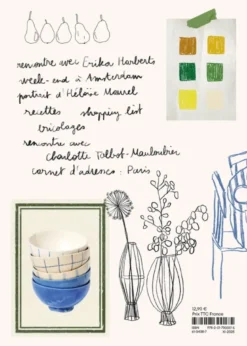 rencontre avec Erika Harberts
week-end à Amsterdam
portrait d'Héloïse Maurel
recettes shopping list
bricolages
rencontre avec
Charlotte Talbot-Mauloubier
carnet d'adresses : Paris
12,90 €
Prix TTC France
ISBN